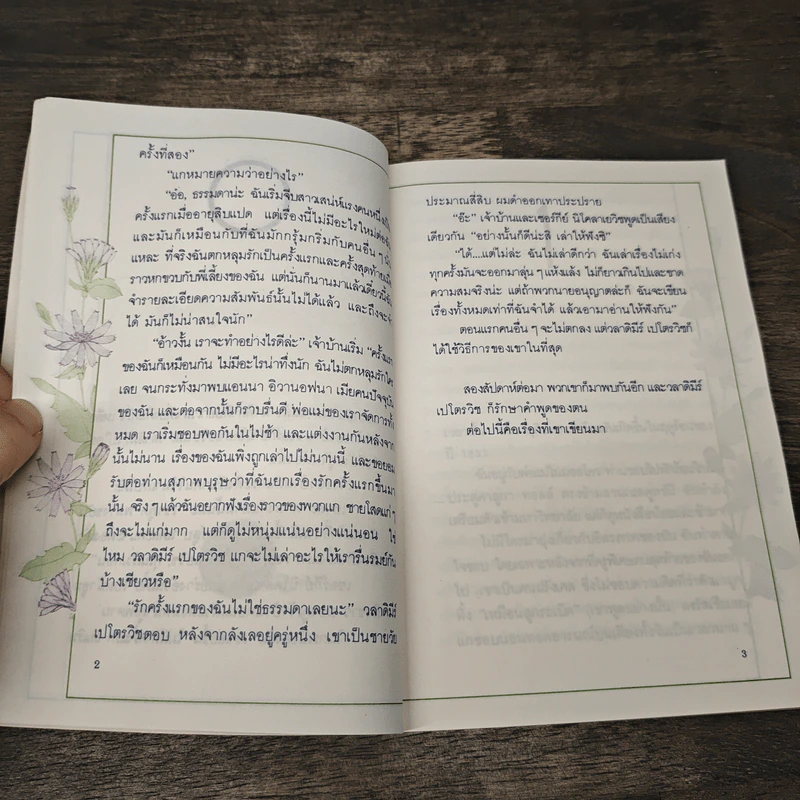 ครั้งที่สอง"
"แกหมายความว่าอย่างไร"
"อ๋อ, ธรรมดาน่ะ ฉันเริ่มจีบสาวเสน่ห์แรงคนหนึ่งเป็น
ครั้งแรกเมื่ออายุสิบแปด แต่เรื่องนี้ไม่มีอะไรใหม่ต่อฉัน
และมันก็เหมือนกับที่ฉันมักกรุ้มกริ่มกับคนอื่น ๆ
แหละ ที่จริงฉันตกหลุมรักเป็นครั้งแรกและครั้งสุดท้าย
ราวหกขวบกับพี่เลี้ยงของฉัน แต่นั่นก็นานมาแล้วเดี๋ยวนี้
จำรายละเอียดความสัมพันธ์นั้นไม่ได้แล้ว และถึงจะ
ได้ มันก็ไม่น่าสนใจนัก"
"อ้าวงั้น เราจะทำอย่างไรดีล่ะ" เจ้าบ้านเริ่ม "ครั้งแรก
ของฉันก็เหมือนกัน ไม่มีอะไรน่าทึ่งนัก ฉันไม่ตกหลุมรักใคร
เลย จนกระทั่งมาพบแอนนา อิวานอฟนา เมียคนปัจจุบัน
ของฉัน และต่อจากนั้นก็ราบรื่นดี พ่อแม่ของเราจัดการทั้ง
หมด เราเริ่มชอบพอกันในไม่ช้า และแต่งงานกันหลังจาก
นั้นไม่นาน เรื่องของฉันเพิ่งถูกเล่าไปไม่นานนี้ และขอยอม
รับต่อท่านสุภาพบุรุษว่าที่ฉันยกเรื่องรักครั้งแรกขึ้นมา
นั้น จริง ๆ แล้วฉันอยากฟังเรื่องราวของพวกแก ชายโสดแก่ ๆ
ถึงจะไม่แก่มาก แต่ก็ดูไม่หนุ่มแน่นอย่างแน่นอน ใช่
ไหม วลาดิมีร์ เปโตรวิช แกจะไม่เล่าอะไรให้เรารื่นรมย์กัน
บ้างเชียวหรือ"
"รักครั้งแรกของฉันไม่ใช่ธรรมดาเลยนะ" วลาดิมีร์
เปโตรวิชตอบ หลังจากลังเลอยู่ครู่หนึ่ง เขาเป็นชายวัย
2
ประมาณสี่สิบ ผมดำออกเทาประปราย
"อ๊ะ" เจ้าบ้านและเซอร์กีย์ นิโคลาเยวิชพูดเป็นเสียง
เดียวกัน "อย่างนั้นก็ดีน่ะสิ เล่าให้ฟังซิ"
"ได้....แต่ไม่ล่ะ ฉันไม่เล่าดีกว่า ฉันเล่าเรื่องไม่เก่ง
ทุกครั้งมันจะออกมาลุ่น ๆ แห้งแล้ง ไม่ก็ยาวเกินไปและขาด
ความสมจริงน่ะ แต่ถ้าพวกนายอนุญาตล่ะก็ ฉันจะเขียน
เรื่องทั้งหมดเท่าที่ฉันจำได้ แล้วเอามาอ่านให้ฟังกัน"
ตอนแรกคนอื่น ๆ จะไม่ตกลง แต่วลาดิมีร์ เปโตรวิชก็
ได้ใช้วิธีการของเขาในที่สุด
สองสัปดาห์ต่อมา พวกเขาก็มาพบกันอีก และวลาดิมีร์
เปโตรวิช ก็รักษาคำพูดของตน
ต่อไปนี้คือเรื่องที่เขาเขียนมา
3